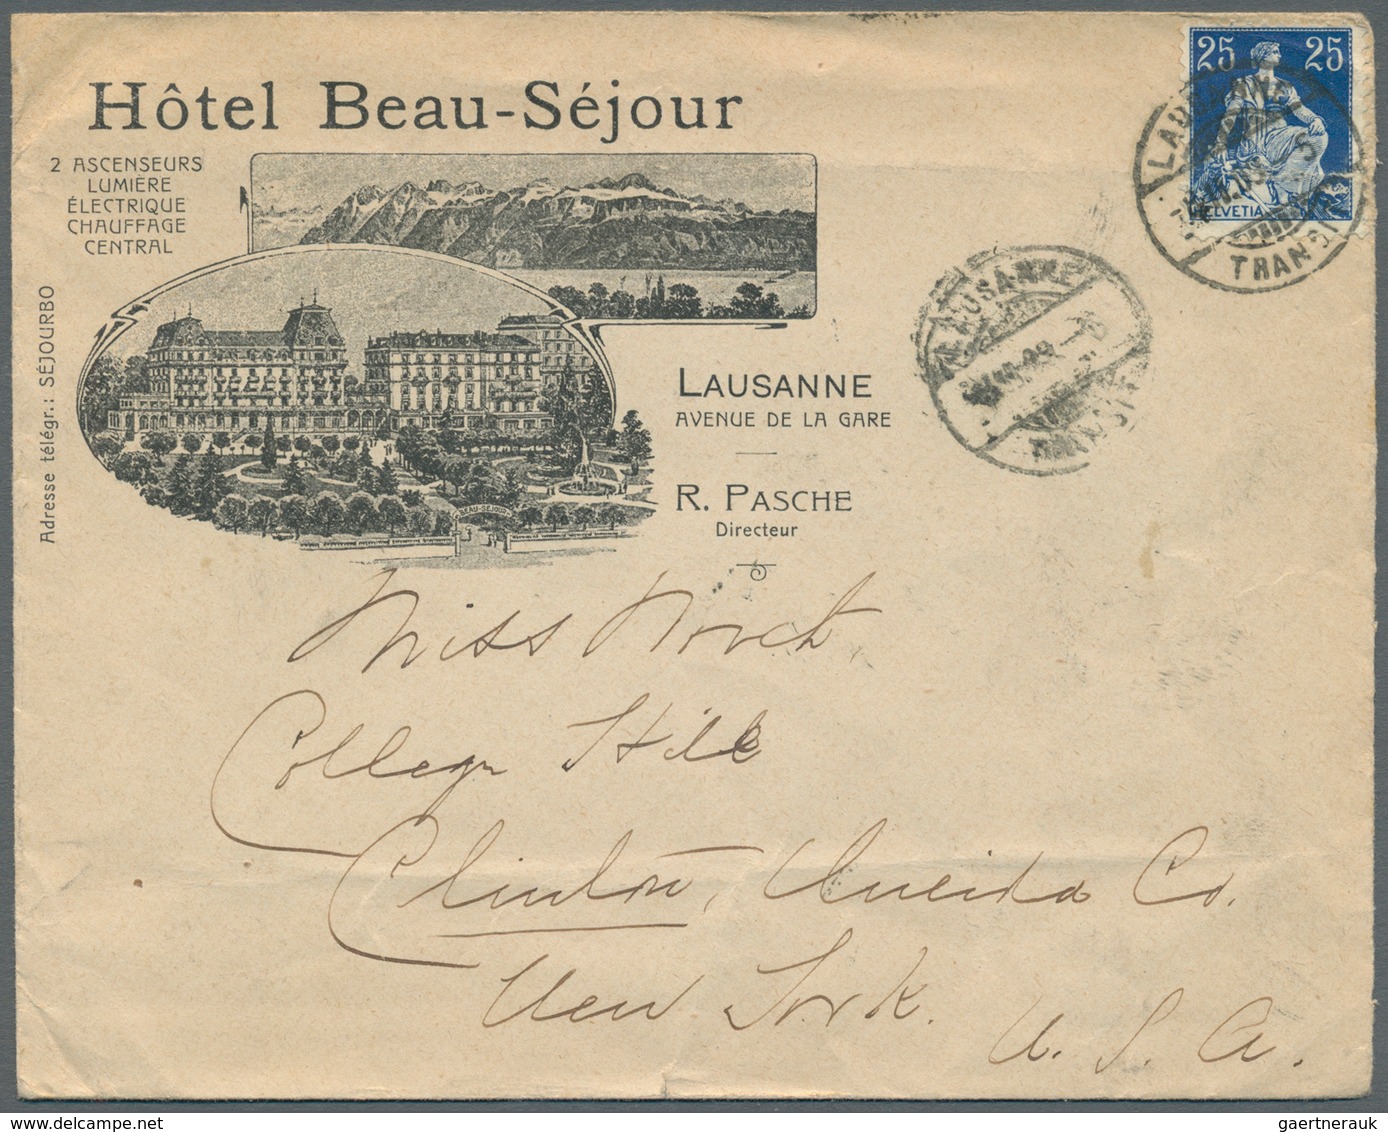 Hôtel Beau-Séjour
2 ASCENSEURS
LUMIÈRE
ÉLECTRIQUE
CHAUFFAGE
CENTRAL
Adresse télégr.: SÉJOURBO
BEAU-SEJOUR
LAUSANNE
AVENUE DE LA GARE
R. PASCHE
Directeur
25 25
HELVETIA
LAUSANNE
TRANSIT
LAUSANNE
TRANSIT
Miss
College Hill
Clinton, Oneida Co.
New York.
U. S. A.
gaertnerauk @ delcampe.net